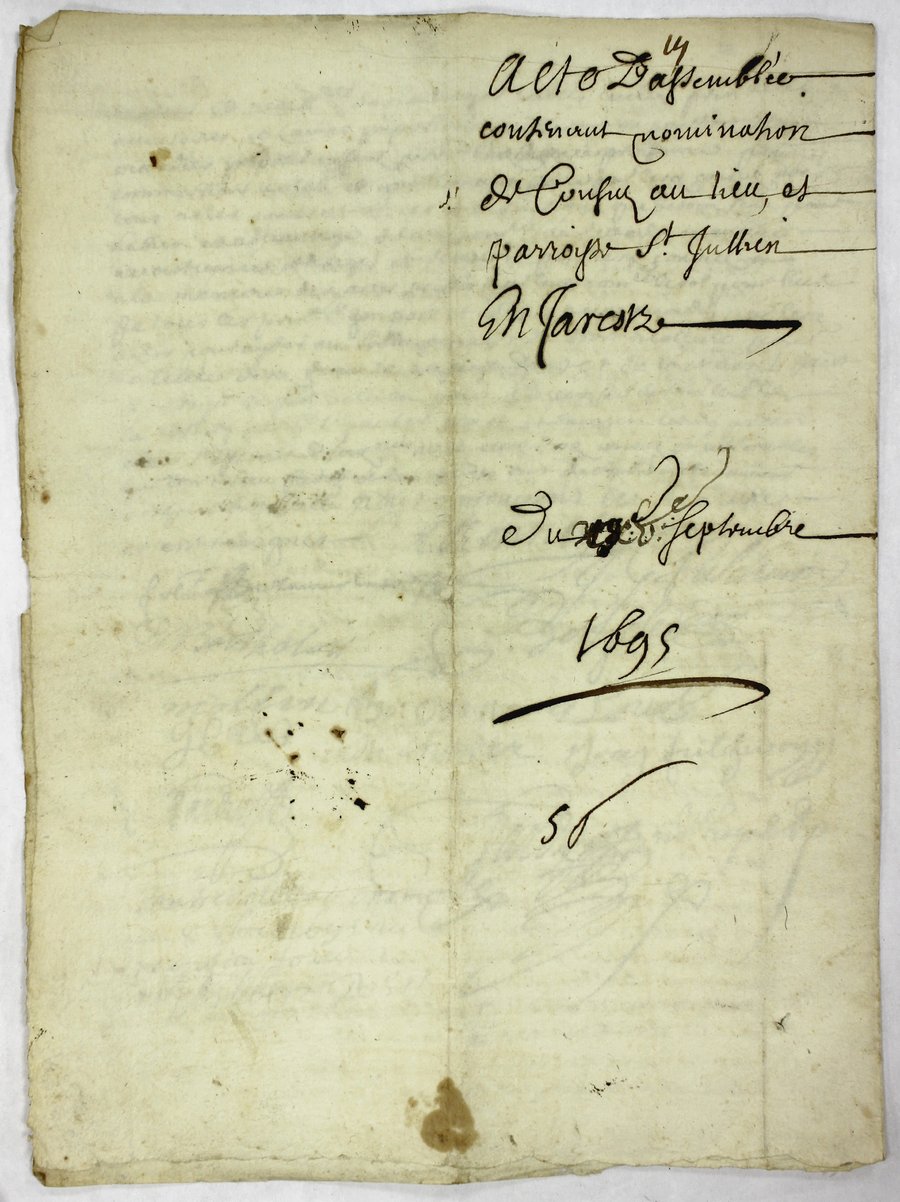 Acte D'assemblée
contenant nomination
de Consuz au lieu, et
parroisse St Jullien
En Jarestz
Du septembre
1695
56